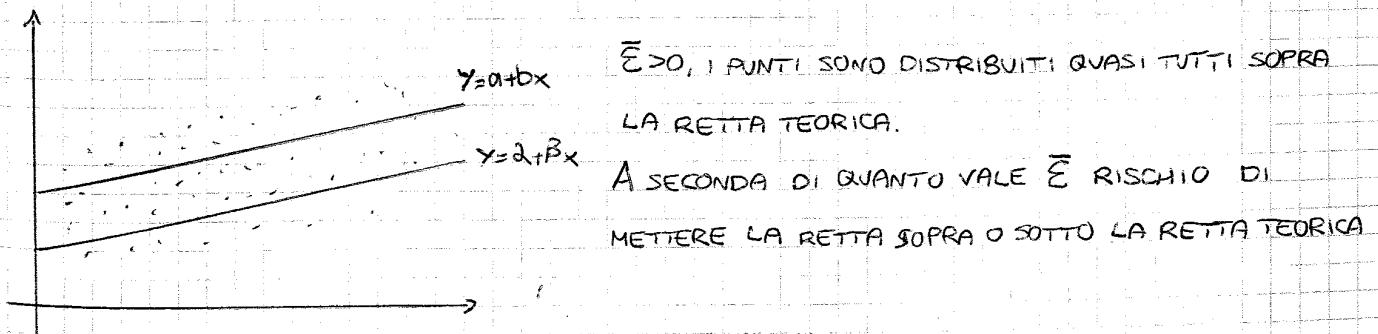 y=a+bx
y=α+βx
ε̅>0, I PUNTI SONO DISTRIBUITI QUASI TUTTI SOPRA
LA RETTA TEORICA.
A SECONDA DI QUANTO VALE ε̅ RISCHIO DI
METTERE LA RETTA SOPRA O SOTTO LA RETTA TEORICA